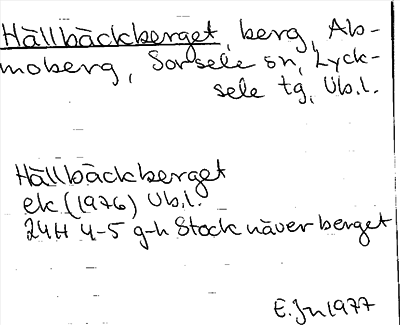 Hällbäckberget, berg, Ab-
moberg, Sorsele sn, Lyck-
sele tg, Vb.l.
Hällbäckberget
ek (1976) Vb.l.
24H 4-5 g-h Stocknäverberget
E.Jn 1977